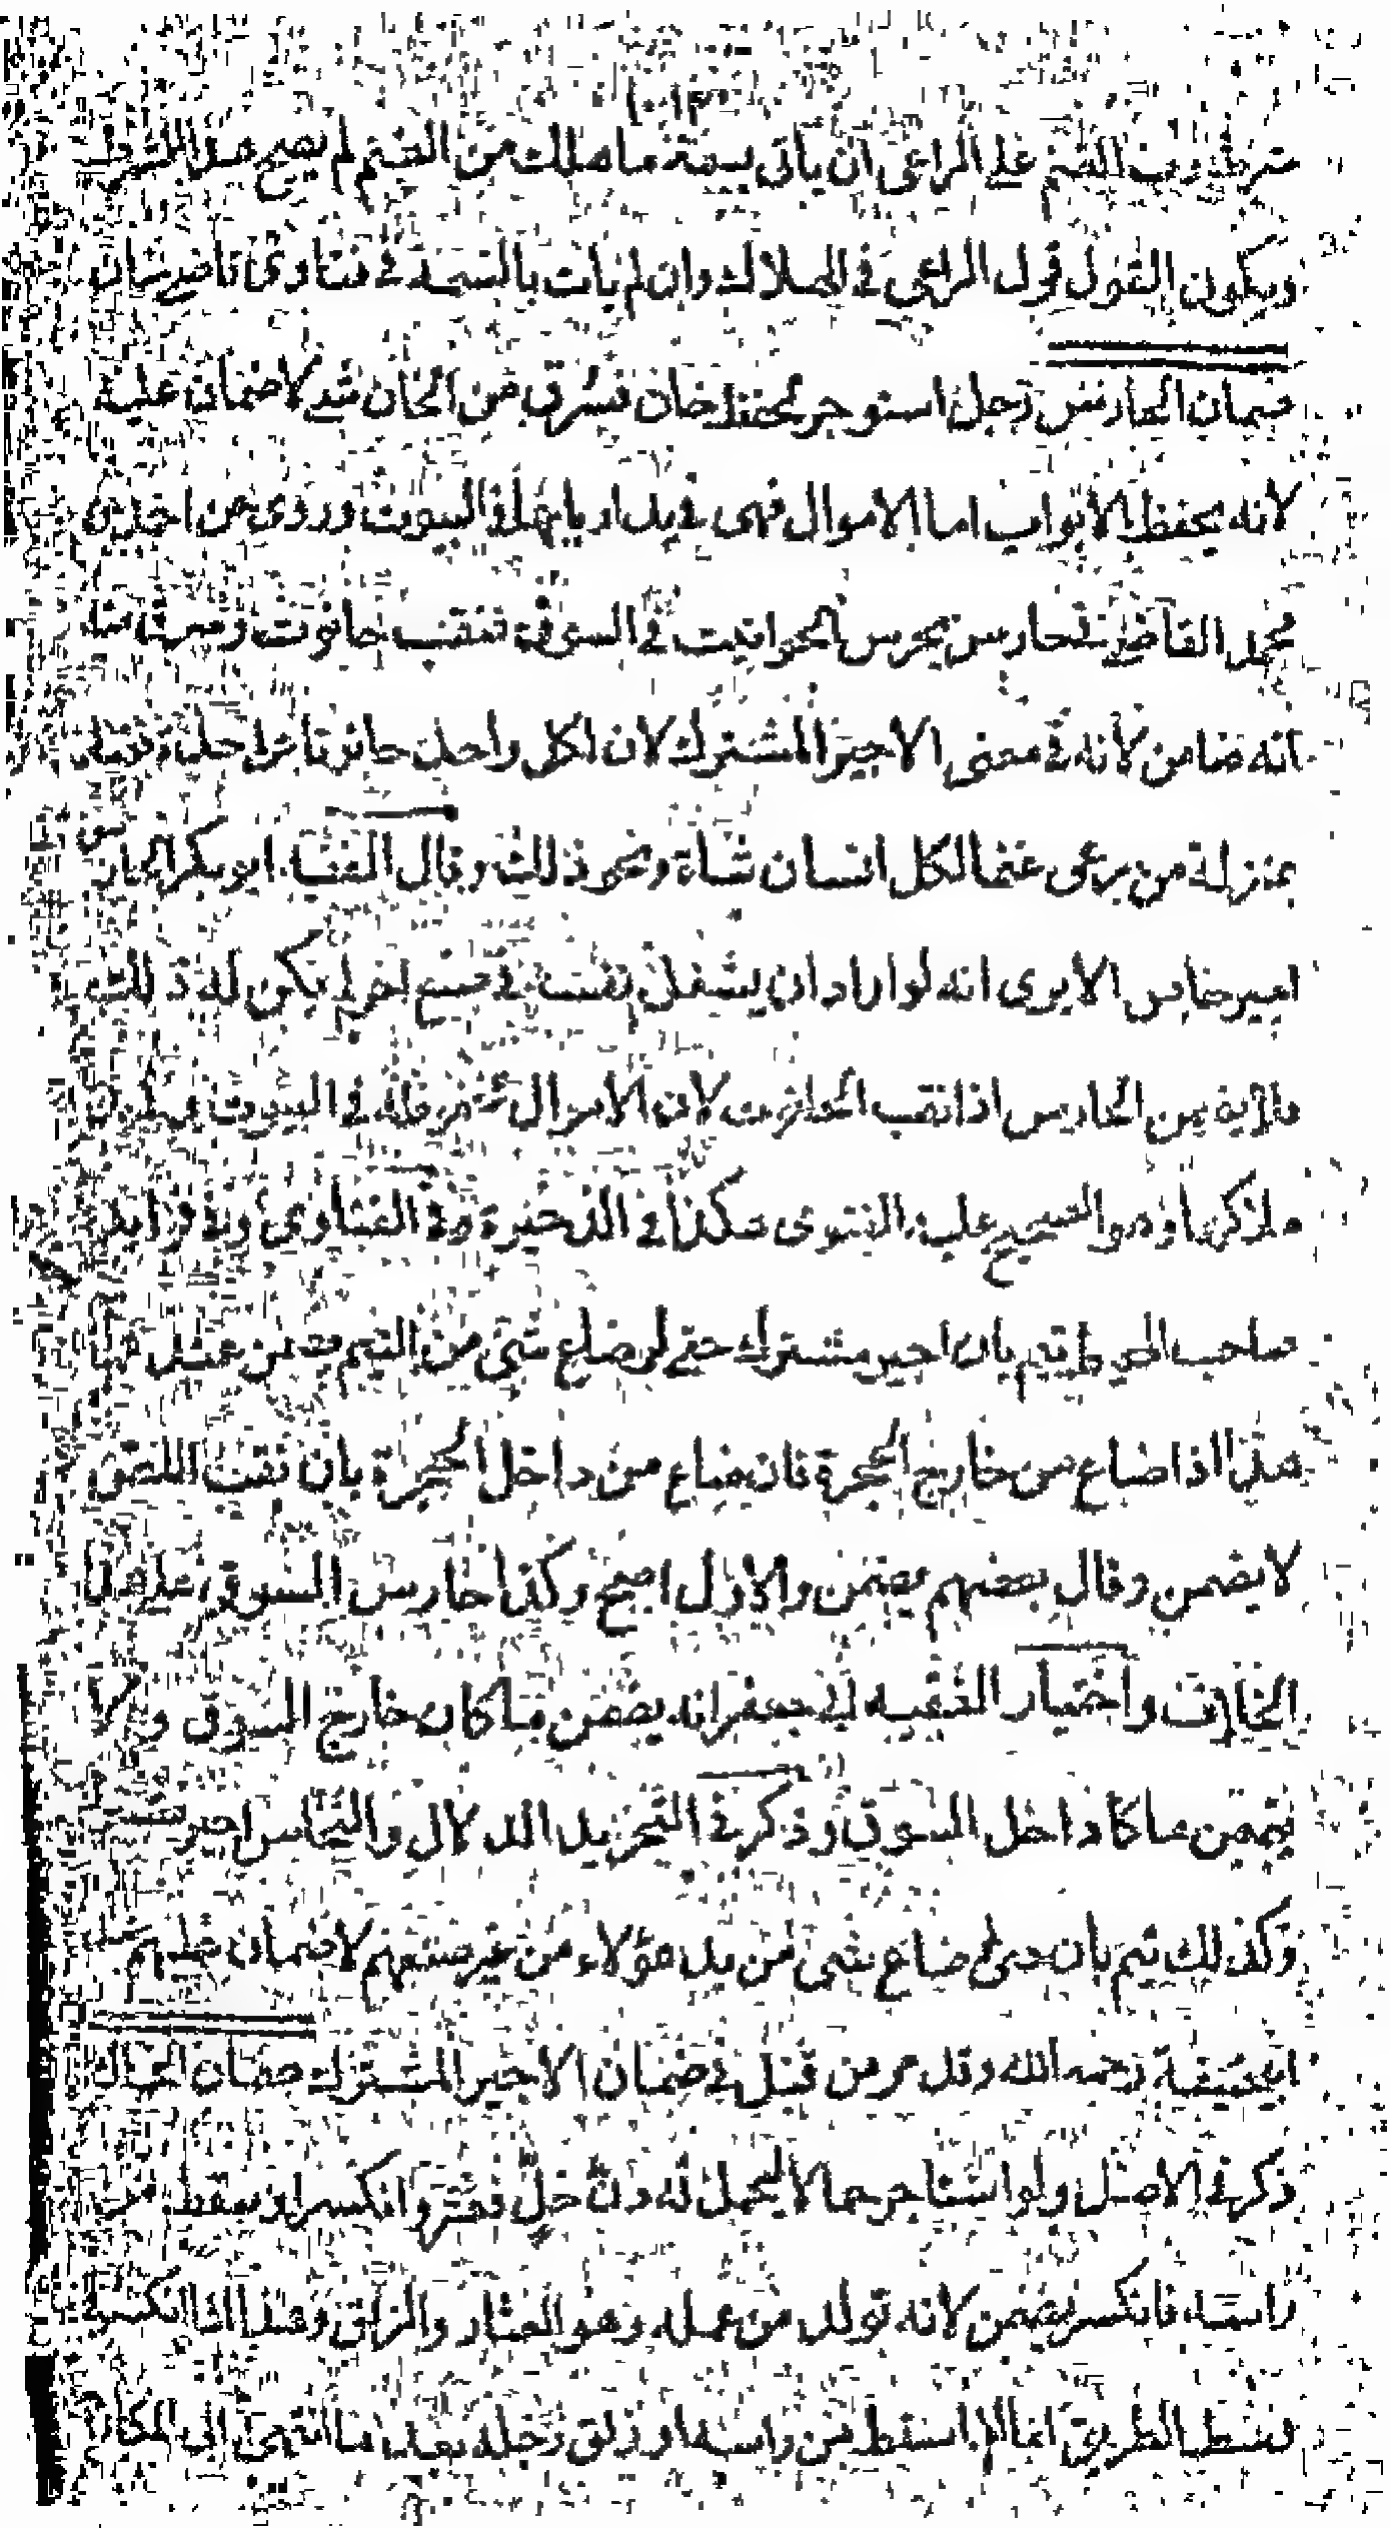 شرط رب الغنم على الراعى ان ياتى بسمة ما هلك من الغنم لم يصح هذا الشرط
ويكون القول قول الراعى فى الهلاك وان لم يات بالسمة فى فتاوى قاضيخان
ضمان الحارس رجل استوجر لحفظ خان فسرق من الخان شئ لا ضمان عليه
لانه يحفظ الابواب اما الاموال فهى فى يد اربابها فى البيوت وروى عن احمد بن
محمد القاضى فى حارس يحرس الحوانيت فى السوق فنقب حانوت وسرق منه
انه ضامن لانه فى معنى الاجير المشترك لان لكل واحد حانوتا على حدة فصار
بمنزلة من يرعى غنما لكل انسان شاة ونحو ذلك وقال الفقيه ابو بكر الحارس
اجير خاص الا يرى انه لو اراد ان يشغل نفسه فى صنع اخر لم يكن له ذلك
فلا يضمن الحارس اذا نقب الحانوت لان الاموال محفوظة فى البيوت فى يد
مالكها وهو الصحيح عليه الفتوى هكذا فى الذخيرة وفى الفتاوى وفى فوائد
صاحب المحيط يقيم بان اجير مشترك حتى لو ضاع شئ من القيم من
هذا اذا ضاع من خارج الحجرة فان ضاع من داخل الحجرة بان نقب اللص
لا يضمن وقال بعضهم يضمن والاول اصح وكذا حارس السوق على هذا
الخلاف واختيار الفقيه ابى جعفر انه يضمن ما كان خارج السوق ولا
يضمن ما كان داخل السوق وذكر فى التجريد الدلال والنخاس اجير
وكذلك تيم بان حتى ضاع شئ من يد هؤلاء من غير صنعهم لا ضمان عليهم عند
ابيحنيفة رحمه الله وقد مر من قبل فى ضمان الاجير المشترك ضمان الحمال
ذكر فى الاصل ولو استاجر حمالا ليحمل له دن خل فعثر وانكسر او سقط من
راسه فانكسر يضمن لانه تولد من عمله وهو العثار والزلق وهذا اذا انكسر فى
وسط الطريق اما اذا سقط من راسه او زلق رجله بعد ما انتهى الى المكان